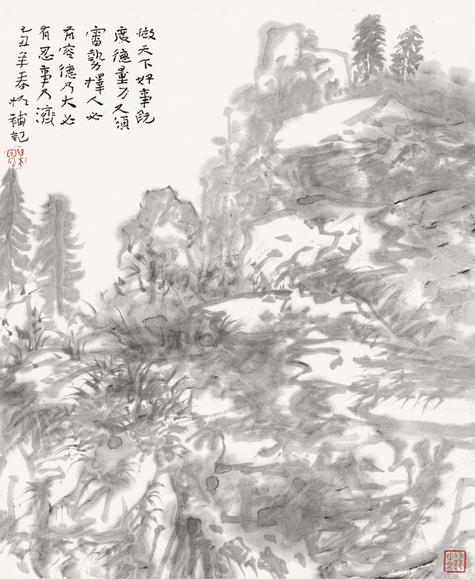 做天下好事既
度德量力又須
審勢擇人必
有容德乃大必
有忍事乃濟
丑年春補記